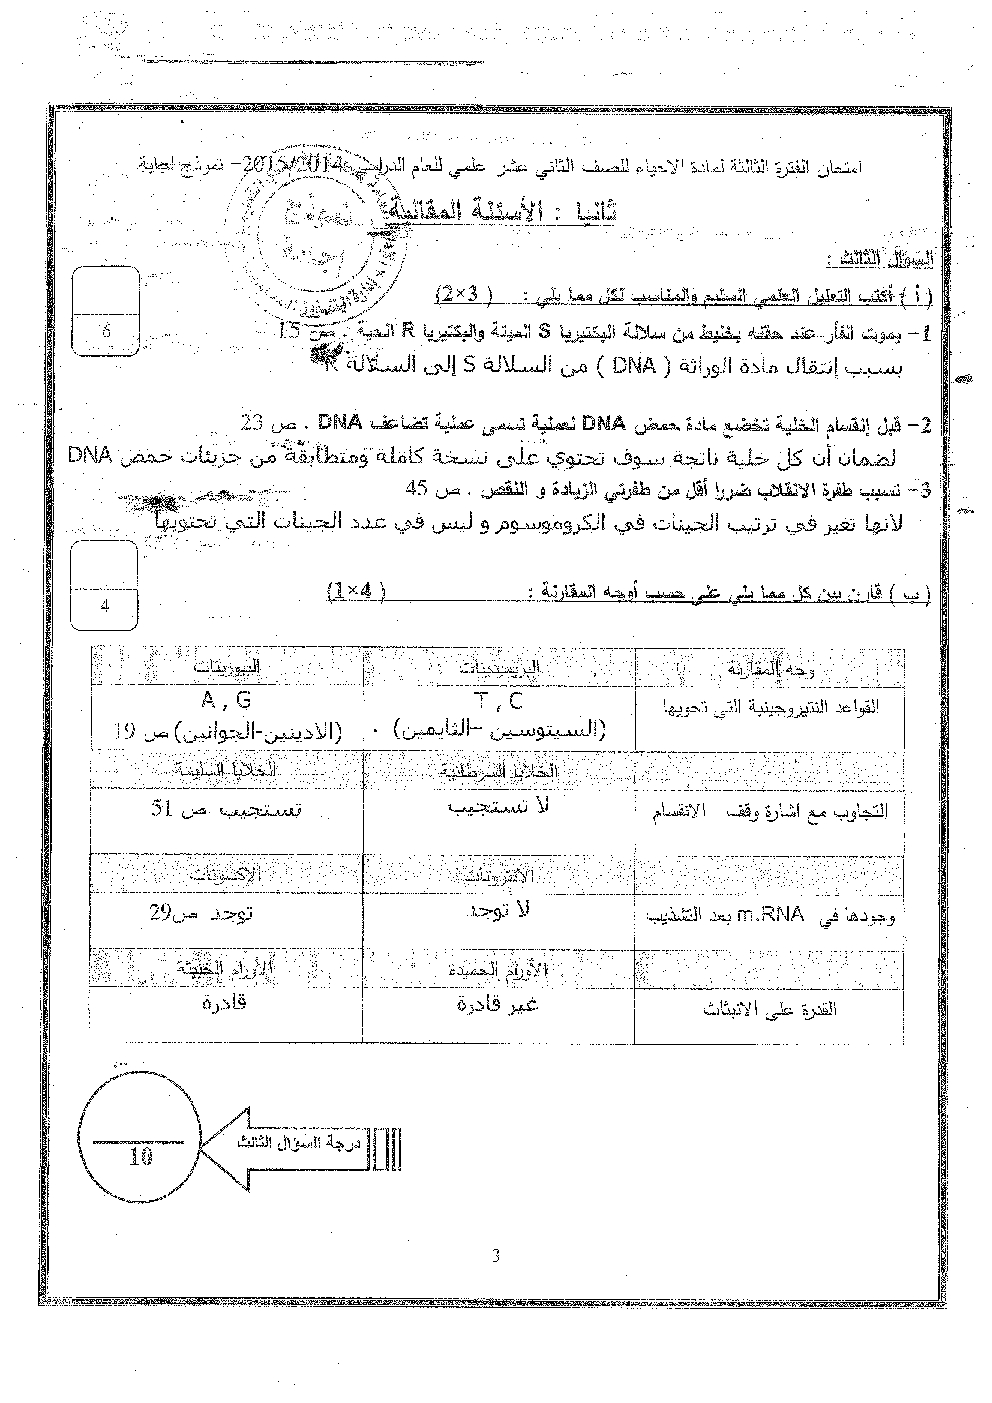 امتحان الفترة الثالثة لمادة الاحياء للصف الثاني عشر علمي للعام الدراسي 2015/2014- نموذج اجابة
ثانيا : الأسئلة المقالية
نموذج
إجابة
السؤال الثالث :
( أ ) أكتب التعليل العلمي السليم والمناسب لكل مما يلي : ( 3×2)
6
1- يموت الفأر عند حقنه بخليط من سلالة البكتيريا S الميتة والبكتيريا R الحية . ص 15
بسبب إنتقال مادة الوراثة ( DNA ) من السلالة S إلى السلالة R
2- قبل إنقسام الخلية تخضع مادة حمض DNA لعملية تسمى عملية تضاعف DNA . ص 23
لضمان أن كل خلية ناتجة سوف تحتوي على نسخة كاملة ومتطابقة من جزيئات حمض DNA
3- تسبب طفرة الانقلاب ضررا أقل من طفرتي الزيادة و النقص . ص 45
لانها تغير في ترتيب الجينات في الكروموسوم و ليس في عدد الجينات التي تحتويها
( ب ) قارن بين كل مما يلي على حسب أوجه المقارنة : ( 4×1)
4
وجه المقارنة البريميدينات البيورينات
القواعد النتيروجينية التي تحويها T , C A , G
(السيتوسين –الثايمين) . (الادينين-الجوانين) ص 19
الخلايا السرطانية الخلايا السليمة
التجاوب مع اشارة وقف الانقسام لا تستجيب تستجيب ص 51
الانترونات الاكسونات
وجودها في m.RNA بعد التشذيب لا توجد توجد ص29
الأورام الحميدة الأورام الخبيثة
القدرة على الانبثاث غير قادرة قادرة
درجة السؤال الثالث
10
3